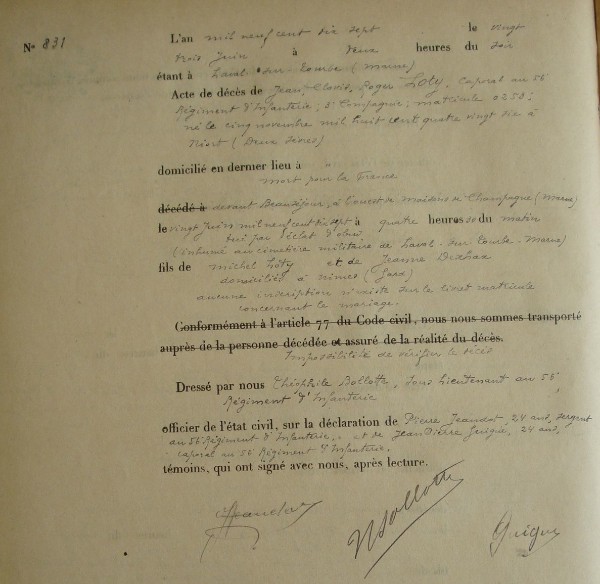 N° 831
L'an mil neuf cent dix sept le vingt
trois Juin à deux heures du soir
étant à Laval sur Tourbe (Marne)
Acte de décès de Jean, Clovis, Roger Loty, Caporal au 56e
Régiment d'Infanterie, 3e Compagnie, matricule 0253;
né le cinq novembre mil huit cent quatre vingt dix à
Niort (Deux Sèvres)
domicilié en dernier lieu à
mort pour la France
décédé à devant Beauséjour, à l'ouest de Maisons de Champagne (Marne)
le vingt Juin mil neuf cent dix sept à quatre heures 30 du matin
tué par l'éclat d'obus
(inhumé au cimetière militaire de Laval-sur Tourbe-Marne)
fils de Michel Loty et de Jeanne
domiciliés à Nimes (Gard)
aucune inscription n'existe sur le livret matricule
concernant le mariage.
Conformément à l'article 77 du Code civil, nous nous sommes transporté
auprès de la personne décédée et assuré de la réalité du décès.
Impossibilité de vérifier le décès
Dressé par nous Théophile Bollotte, sous lieutenant au 56e
Régiment d'Infanterie
officier de l'état civil, sur la déclaration de Pierre Jeandot, 24 ans, sergent
au 56e Régiment d'Infanterie, et de Jean Pierre Guigue, 24 ans,
caporal au 56e Régiment d'Infanterie,
témoins, qui ont signé avec nous, après lecture.
Jeandot Bollotte Guigue